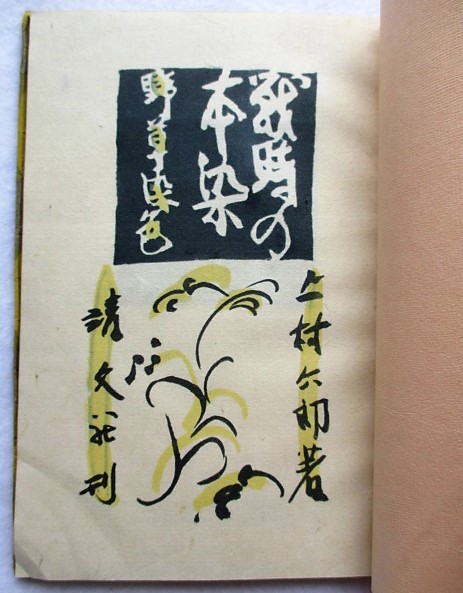 戦時の
本染
野草染色
上村六郎著
靖文社刊